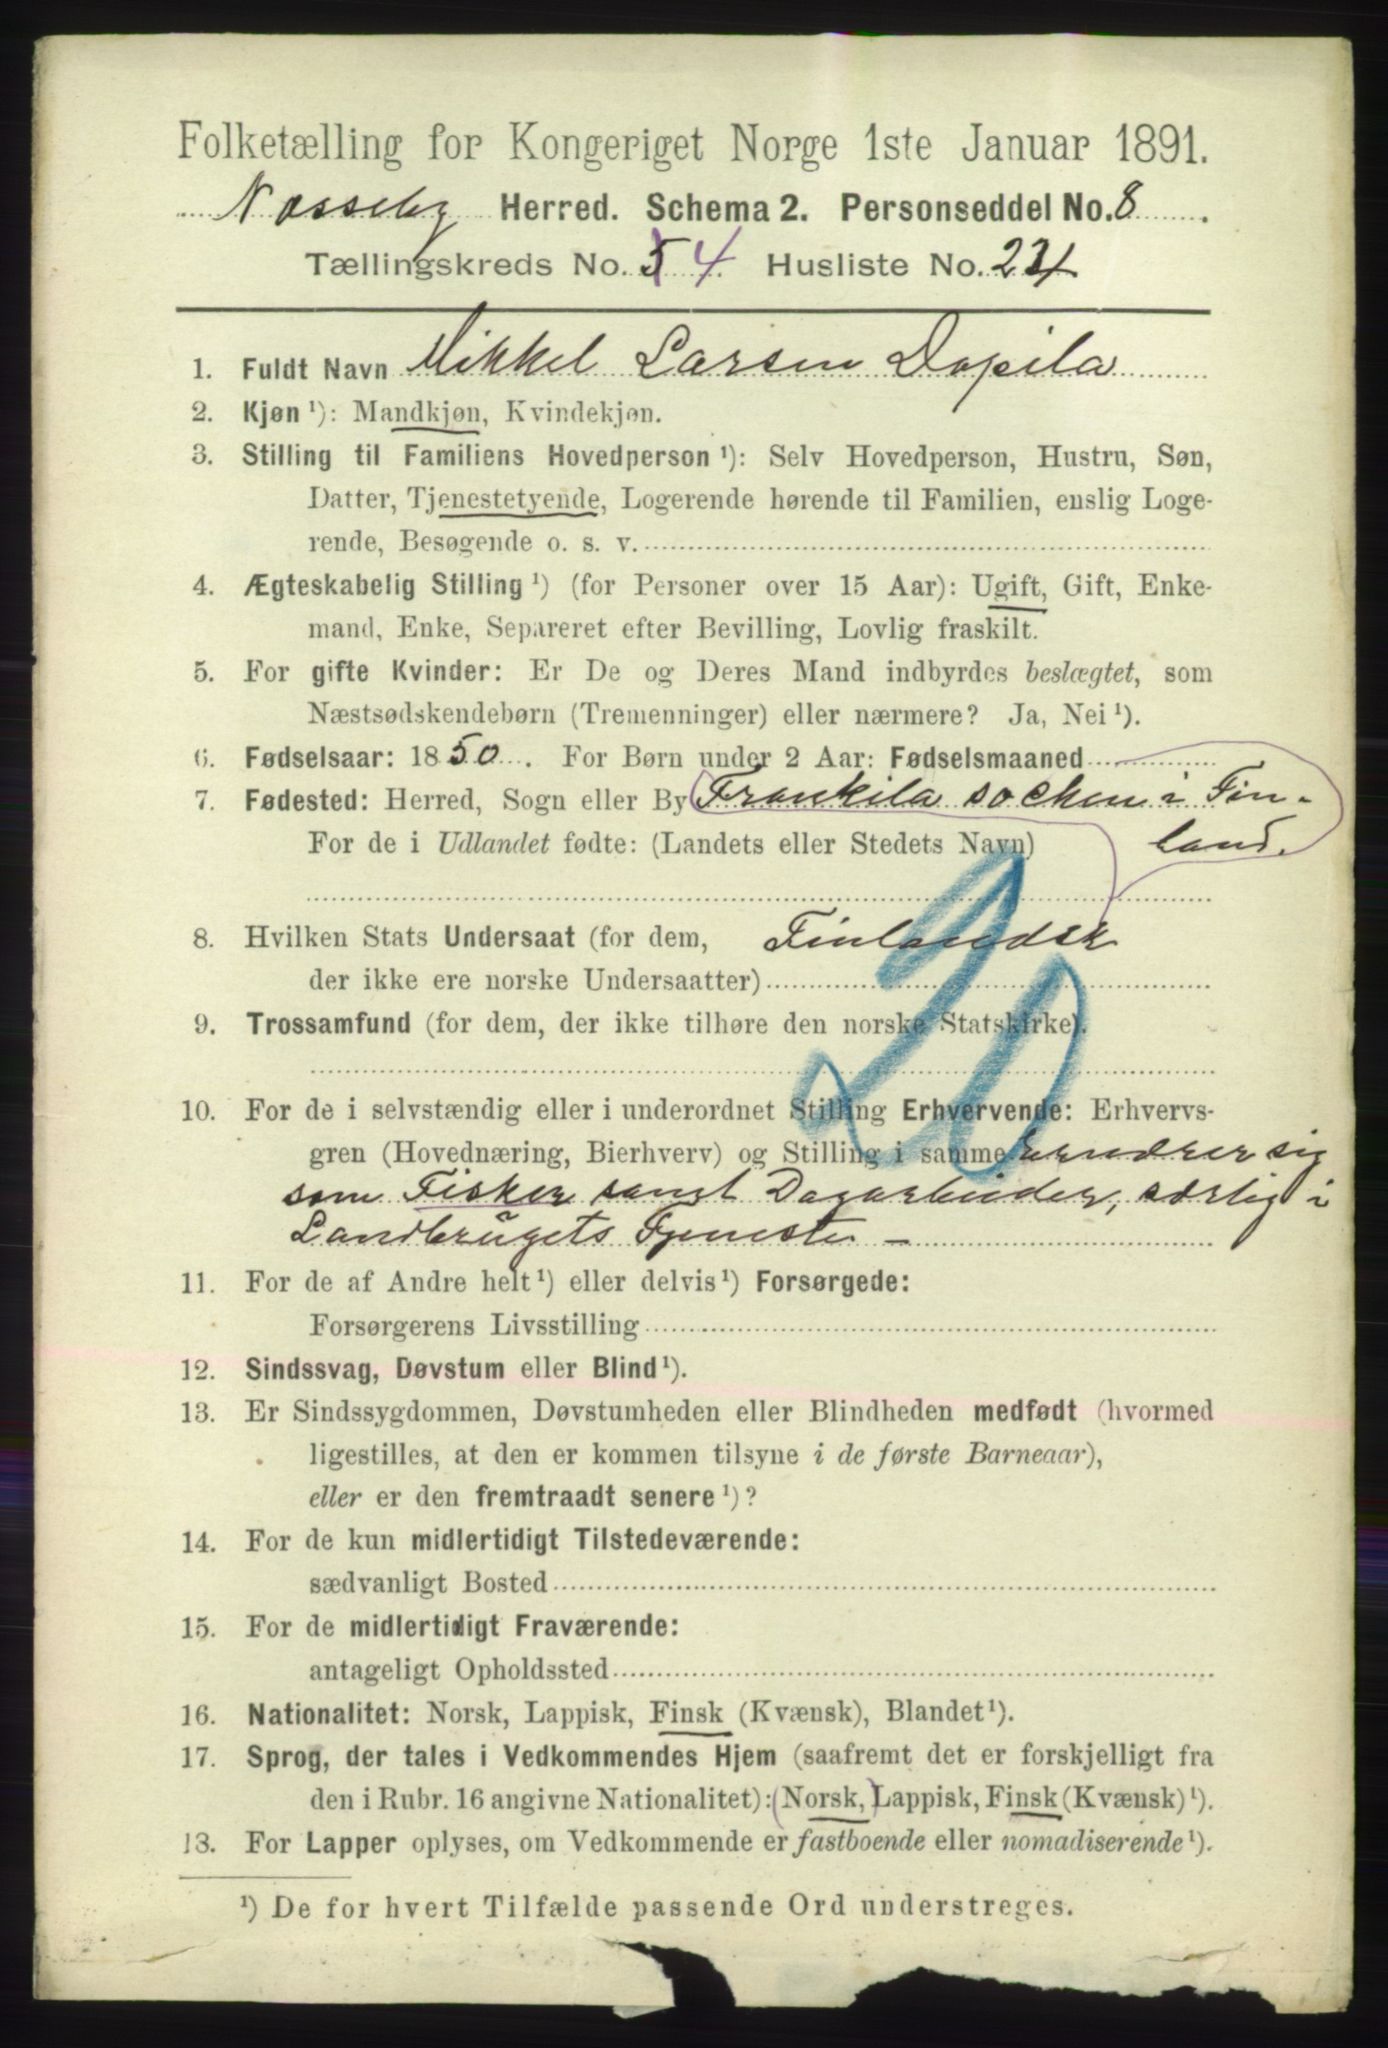 Folketælling for Kongeriget Norge 1ste Januar 1891.
Næsseby Herred. Schema 2. Personseddel No. 8.
Tællingskreds No. 5 4 Husliste No. 24
1. Fuldt Navn Mikkel Larsen Dopila
2. Kjøn ¹): Mandkjøn, Kvindekjøn.
3. Stilling til Familiens Hovedperson ¹): Selv Hovedperson, Hustru, Søn,
Datter, Tjenestetyende, Logerende hørende til Familien, enslig Loge-
rende, Besøgende o. s. v.
4. Ægteskabelig Stilling ¹) (for Personer over 15 Aar): Ugift, Gift, Enke-
mand, Enke, Separeret efter Bevilling, Lovlig fraskilt.
5. For gifte Kvinder: Er De og Deres Mand indbyrdes beslægtet, som
Næstsødskendebørn (Tremenninger) eller nærmere? Ja, Nei ¹).
6. Fødselsaar: 1850. For Børn under 2 Aar: Fødselsmaaned
7. Fødested: Herred, Sogn eller By Frankila socken i Fin-
For de i Udlandet fødte: (Landets eller Stedets Navn) land.
8. Hvilken Stats Undersaat (for dem, Finlandsk
der ikke ere norske Undersaatter)
20
9. Trossamfund (for dem, der ikke tilhøre den norske Statskirke).
10. For de i selvstændig eller i underordnet Stilling Erhvervende: Erhvervs-
gren (Hovednæring, Bierhverv) og Stilling i samme ernærer sig
som Fisker samt Dagarbeider, særlig i
Landbrugets Tjeneste –
11. For de af Andre helt ¹) eller delvis ¹) Forsørgede:
Forsørgerens Livsstilling
12. Sindssvag, Døvstum eller Blind ¹).
13. Er Sindssygdommen, Døvstumheden eller Blindheden medfødt (hvormed
ligestilles, at den er kommen tilsyne i de første Barneaar),
eller er den fremtraadt senere ¹)?
14. For de kun midlertidigt Tilstedeværende:
sædvanligt Bosted
15. For de midlertidigt Fraværende:
antageligt Opholdssted
16. Nationalitet: Norsk, Lappisk, Finsk (Kvænsk), Blandet ¹).
17. Sprog, der tales i Vedkommendes Hjem (saafremt det er forskjelligt fra
den i Rubr. 16 angivne Nationalitet): (Norsk,) Lappisk, Finsk (Kvænsk) ¹).
18. For Lapper oplyses, om Vedkommende er fastboende eller nomadiserende ¹).
¹) De for hvert Tilfælde passende Ord understreges.